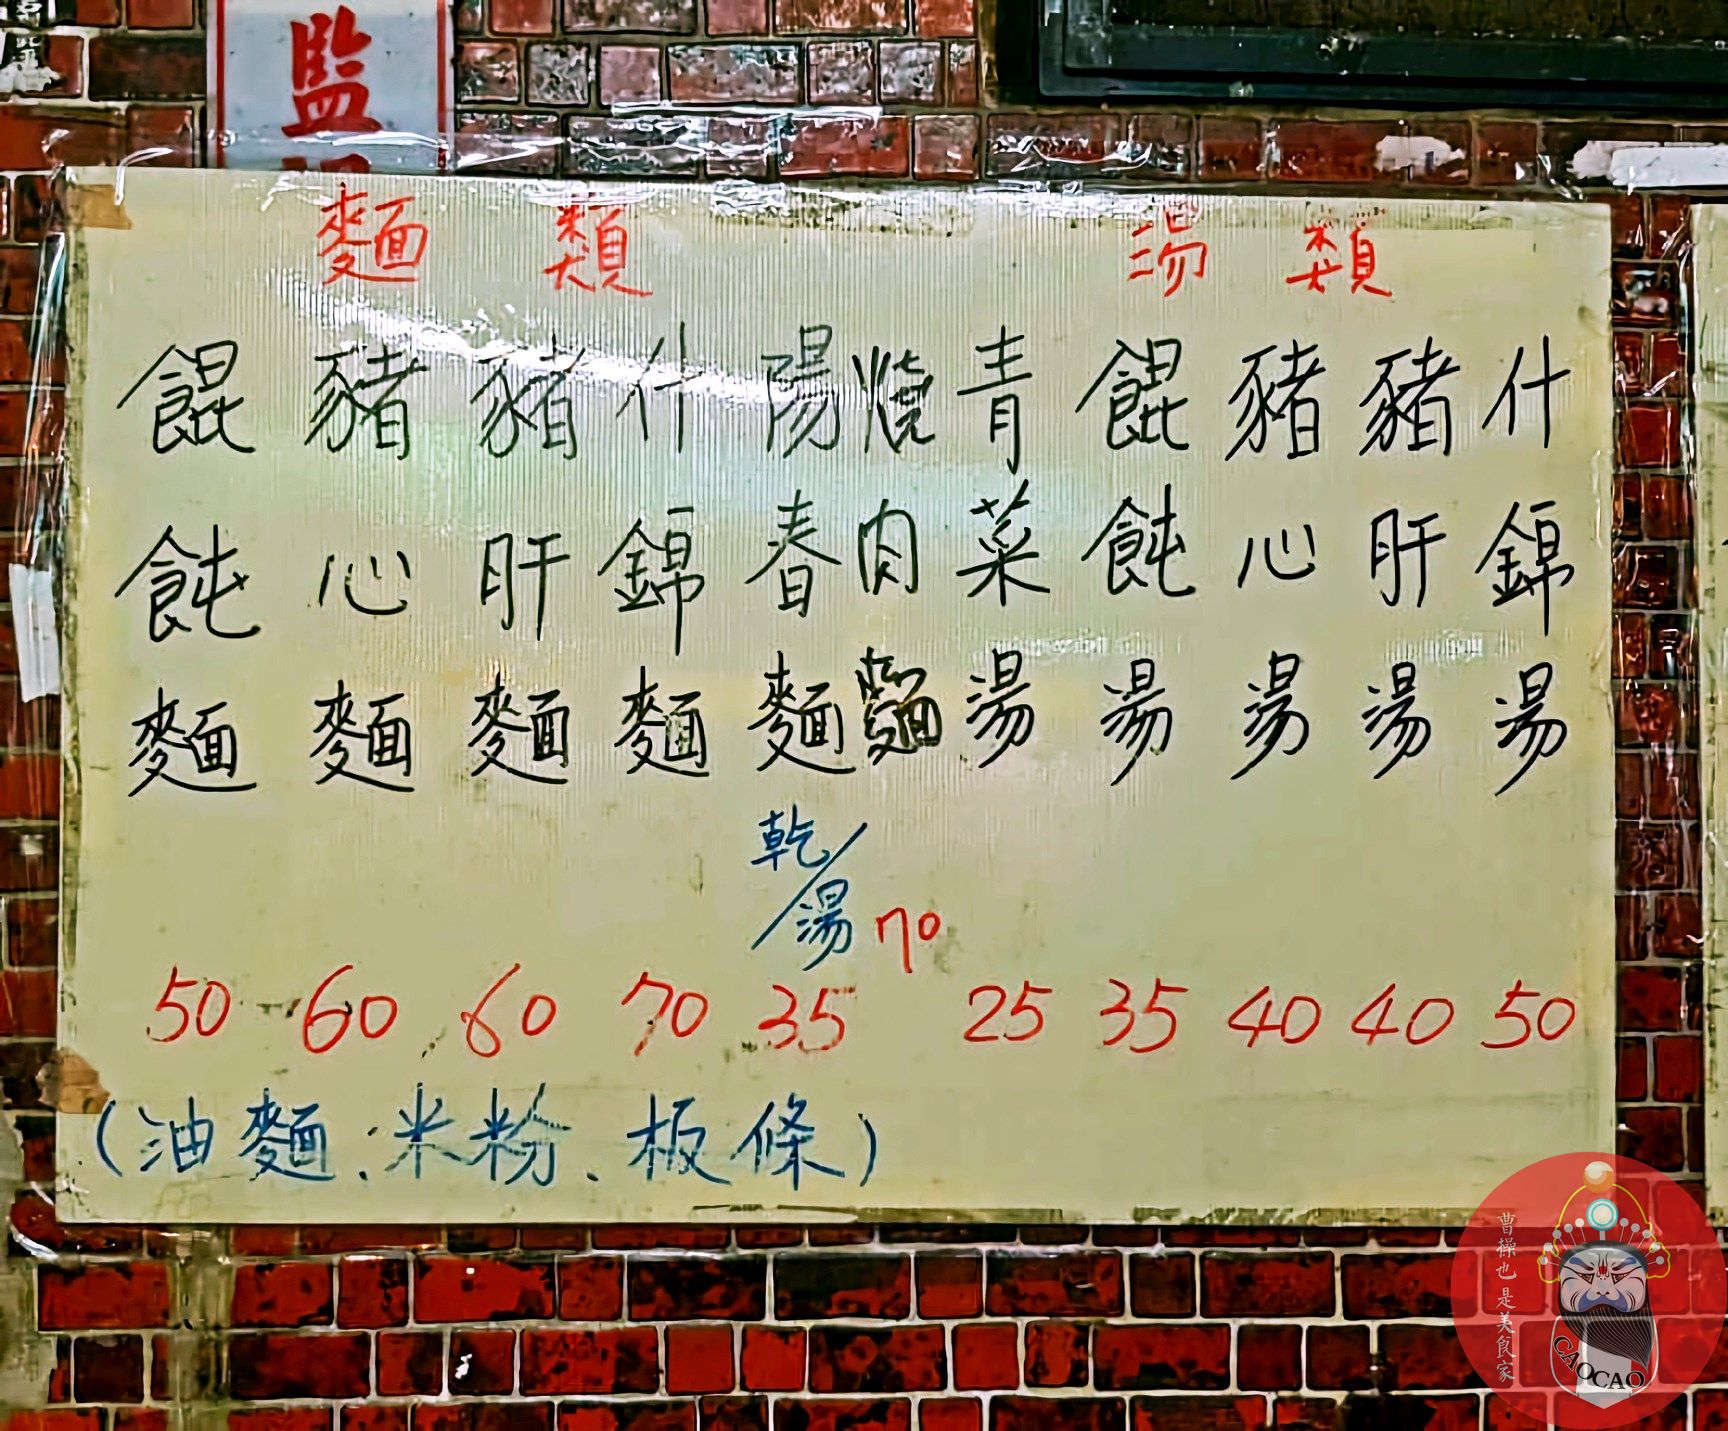 監
麵類
湯類
餛飩麵
豬心麵
豬肝麵
什錦麵
陽春麵
燒肉麵
青菜湯
餛飩湯
豬心湯
豬肝湯
什錦湯
乾/湯
70
50 60 60 70 35 25 35 40 40 50
(油麵、米粉、板條)
曹操也是美食家
CAOCAO